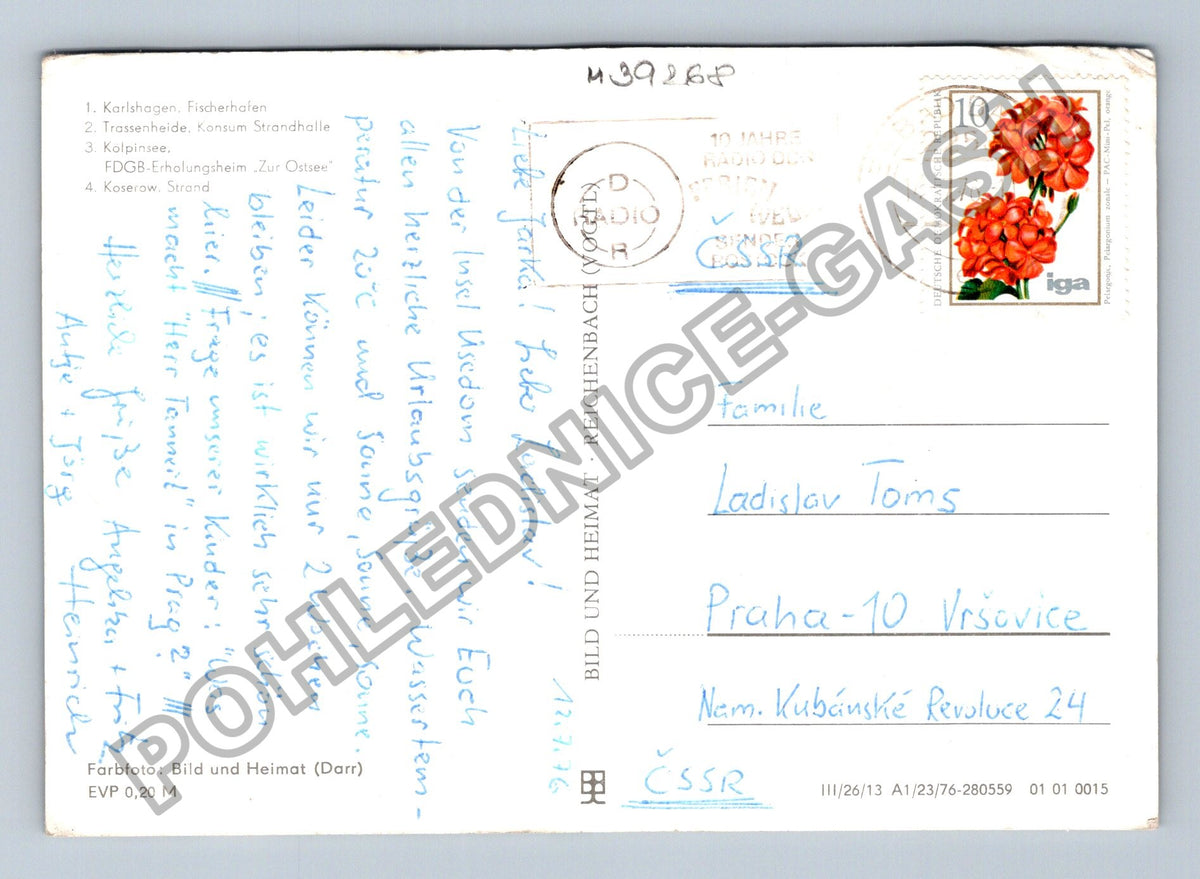 M 39268
1. Karlshagen, Fischerhafen
2. Trassenheide, Konsum Strandhalle
3. Kolpinsee,
FDGB-Erholungsheim „Zur Ostsee"
4. Koserow, Strand
12.7.76
Liebe Jarka! Lieber Ladislav!
Von der Insel Usedom senden wir Euch
allen herzliche Urlaubsgrüße. Wassertem-
peratur 20°C und Sonne, Sonne, Sonne.
Leider können wir nur 2 Wochen
bleiben; es ist wirklich sehr schön
hier. /// Frage unserer Kinder: "Was
macht "Herr Tanneil" in Prag?" ///
Herzliche Grüße Angelika + Fritz
Antje + Jörg Heinrich
Farbfoto: Bild und Heimat (Darr)
EVP 0,20 M
BILD UND HEIMAT · REICHENBACH (VOGTL)
D
RADIO
R
10 JAHRE
RADIO DDR
SENDER
ČSSR
DEUTSCHE DEMOKRATISCHE REPUBLIK
10
iga
Pelargonie, Pelargonium zonale – PAC-Mini-Pel, orange
Familie
Ladislav Toms
Praha-10 Vršovice
Nam. Kubánské Revoluce 24
ČSSR
III/26/13 A1/23/76-280559 01 01 0015
POHLEDNICE-GASH